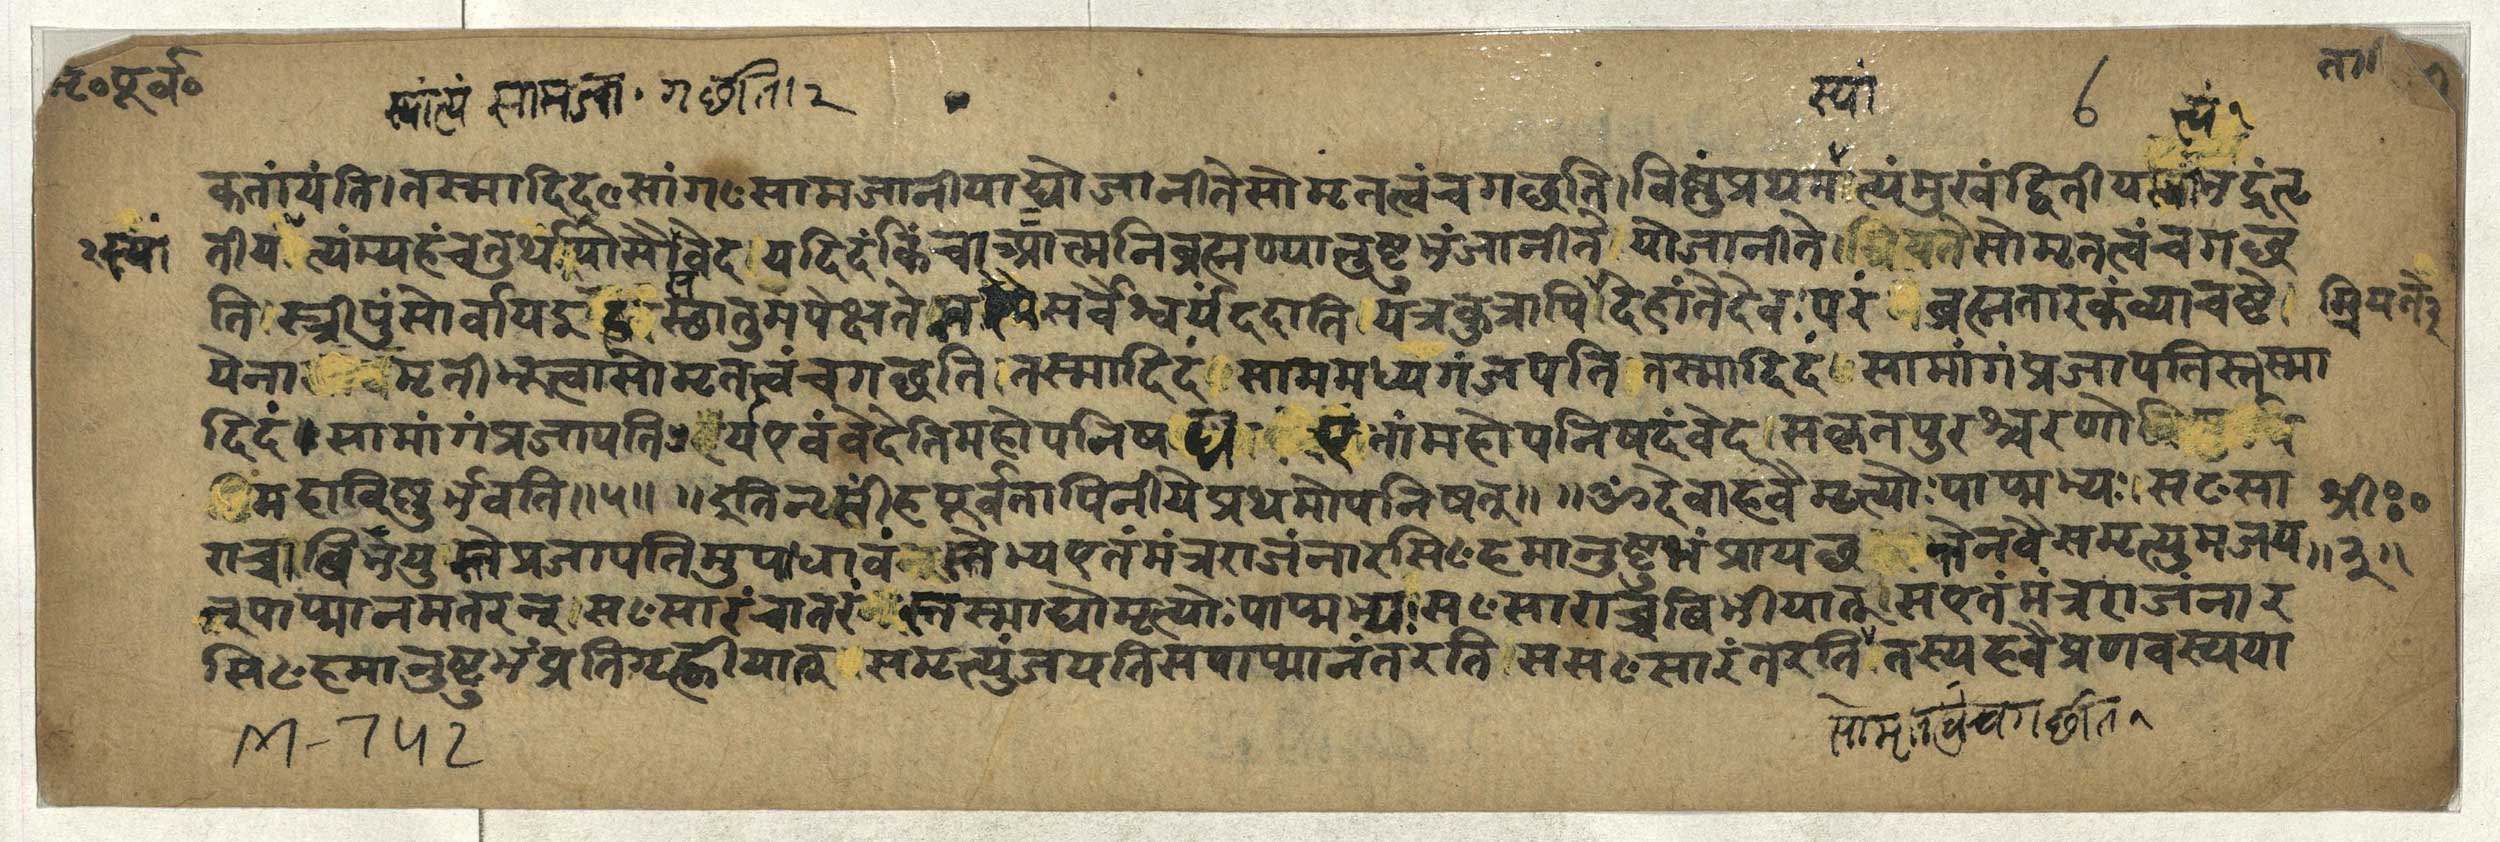 नृ॰पूर्व॰
स्यांत्यं सामजा॰गछति। २
स्यां
६
त्यं १
ता॥
क्तांयंति।तस्माद्दिदꣳसांगꣳसामजानीयाद्योजानीतेसोमृतत्वंचगछति।विष्णुंप्रथमंत्यंमुखंद्वितीय भद्रंतृ
२स्यां
तीय त्यंम्यहंचतुर्थ योसोवेद यदिदंकिंचात्मनिब्रह्मण्यानुष्टुभंजानीते योजानीते। म्रियतेसोमृतत्वंचगछ
ति। स्त्रीपुंसोर्वायइ स्छातुमपेक्षते सर्वैश्वर्यंददाति यत्रकुत्रापि देहांतेदेवःपरं ब्रह्मतारकंव्याचष्टे।
म्रियते२
येना मृतीभूत्वासोमृतत्वंचगछति तस्मादिदं साममध्यगंजपति तस्मादिदं सामांगंप्रजापतिस्तस्मा
दिदं सामांगंप्रजापति र्यएवंवेदेतिमहोपनिष एतांमहोपनिषदंवेद सकृतपुरश्चरणो
महाविष्णुर्भवति॥५॥ ॥इतिनृसींहपूर्वतापिनीयेप्रथमोपनिषत्॥ ॥ॐदेवाहवैमृत्योःपाप्मभ्यः सꣳसा
श्रीः॰
राच्चाबिभयु स्तेप्रजापतिमुपाधावं स्तेभ्यएतंमंत्रराजंनारसिꣳहमानुष्टुभंप्रायछ त्तेनवैसमृत्युमजय
॥३॥
न्पाप्मानमतरन् सꣳसारंचातरं स्तस्माद्योमृत्योःपाप्मभ्यः सꣳसाराच्चबिभीयात् सएतंमंत्रराजंनार
सिꣳहमानुष्टुभंप्रतिगृह्णीयात् समृत्युंजयतिसपाप्मानंतरति ससꣳसारंतरति तस्यहवैप्रणवस्यया
सोमृतत्वंचगछति१
M-742